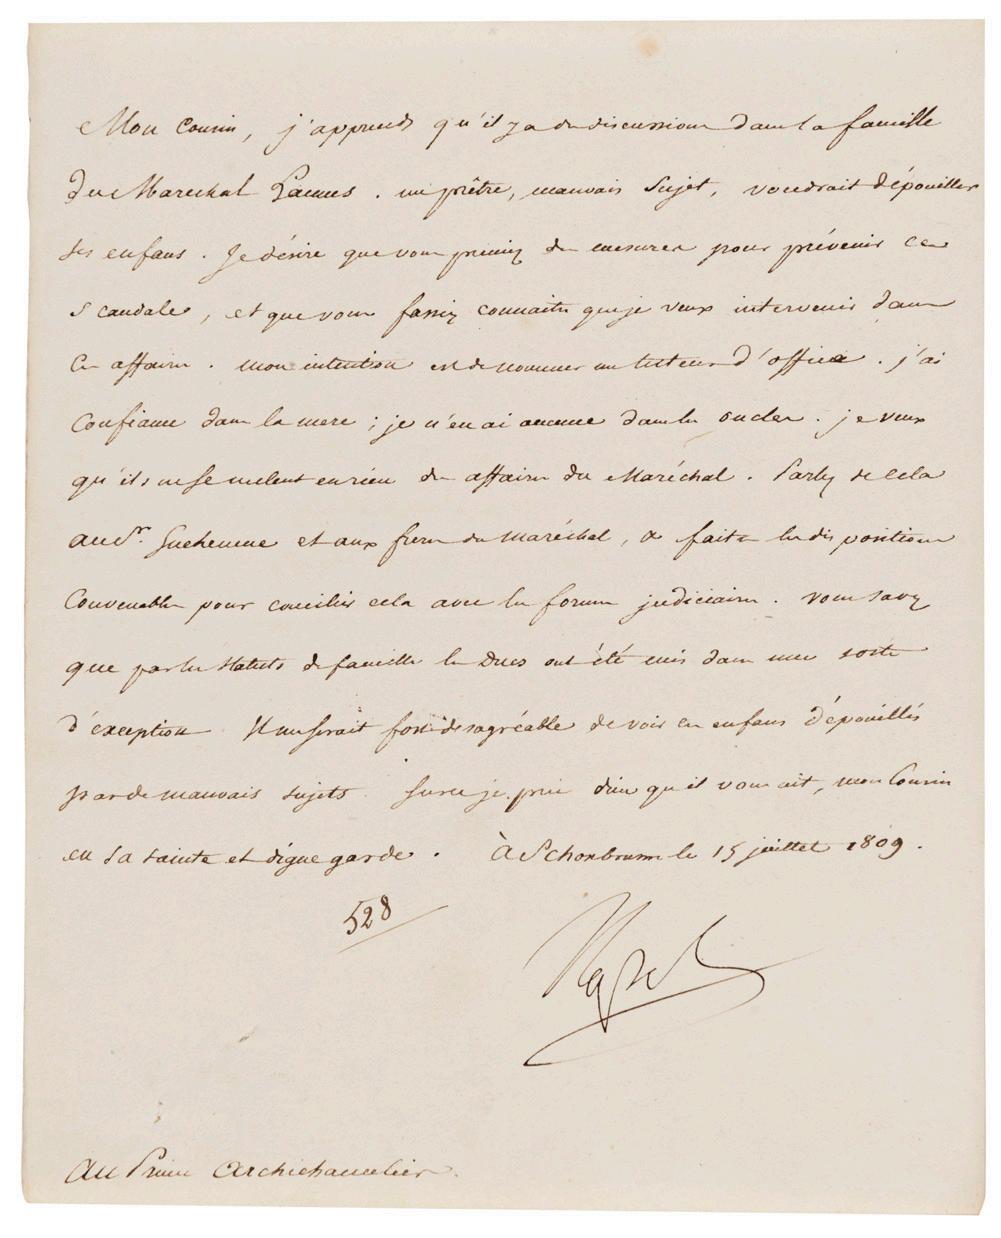 Mon Cousin, j'apprends qu'il y a des discussions dans la famille
du Marechal Lannes. un prêtre, mauvais sujet, voudrait dépouiller
ses enfans. Je désire que vous preniez des mesures pour prévenir ce
scandale, et que vous fassiez connaitre que je veux intervenir dans
ces affaires. mon intention est de nommer un tuteur d'office. j'ai
confiance dans la mere; je n'en ai aucune dans les oncles. je veux
qu'ils ne se mêlent en rien des affaires du Maréchal. Parlez de cela
au Sr. Guéheneuc et aux freres du maréchal, & faites les dispositions
Convenables pour concilier cela avec les formes judiciaires. vous savez
que par les statuts de famille les Ducs ont été mis dans une sorte
d'exception Il me serait fort desagréable de voir ces enfans dépouillés
par de mauvais sujets. sur ce je prie dieu qu'il vous ait, mon Cousin
en sa sainte et digne garde. à Schonbrunn le 15 juillet 1809.
528
Napol
Au Prince Archichancelier.